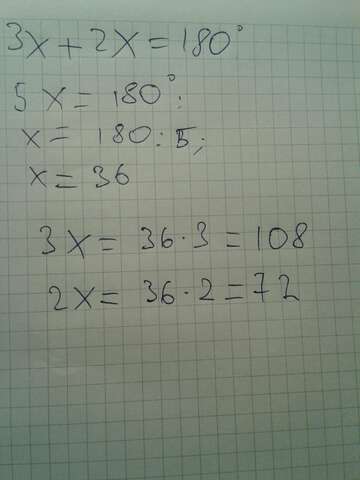 3x+2x=180°
5x=180°;
x=180:5;
x=36
3x=36·3=108
2x=36·2=72